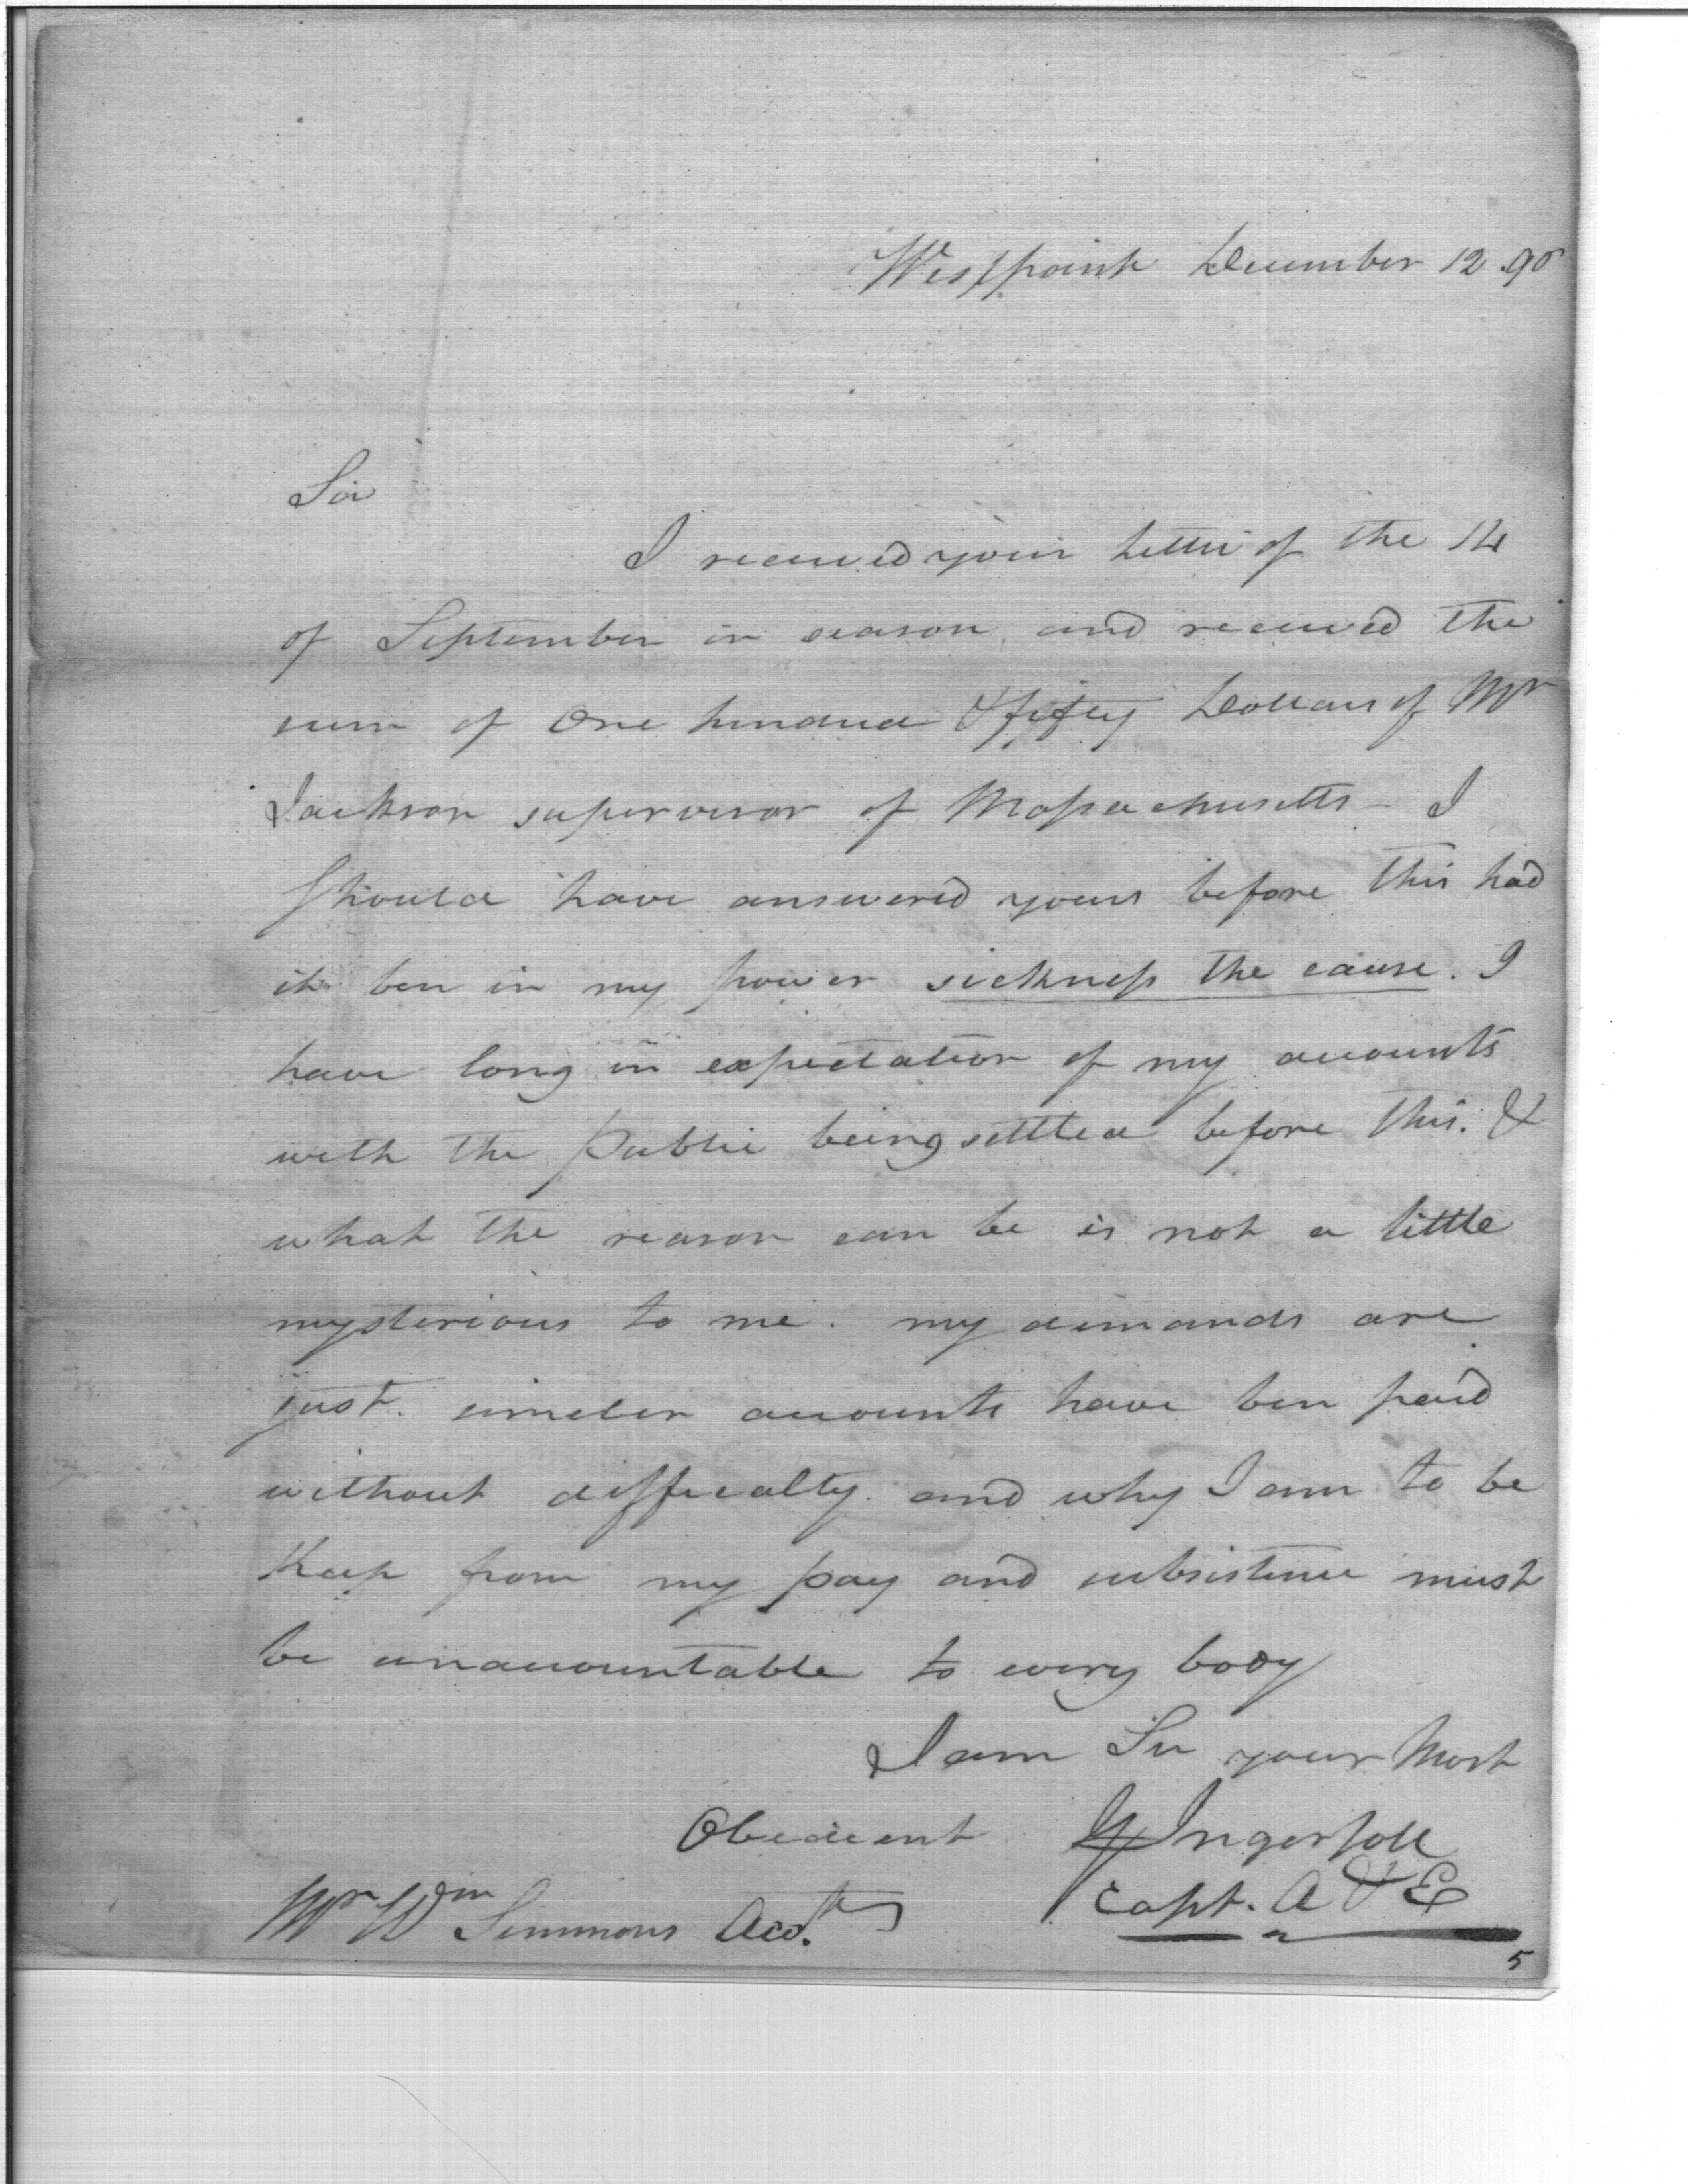 Westpoint December 12. 98
Sir
I received your Letter of the 14
of September in season, and received the
sum of One hundred & fifty Dollars of Mr
Jackson supervisor of Massachusetts – I
Should have answered yours before this had
it ben in my power sickness the cause. I
have long in expectation of my accounts
with the Public being settled before this. &
what the reason can be is not a little
mysterious to me. my demands are
just. simeler accounts have ben paid
without difficulty. and why I am to be
Keep from my pay and subsistence must
be unaccountable to every body
I am Sir your Most
Obedient G Ingersoll
Capt. A & E
Mr Wm Simmons Acct
5